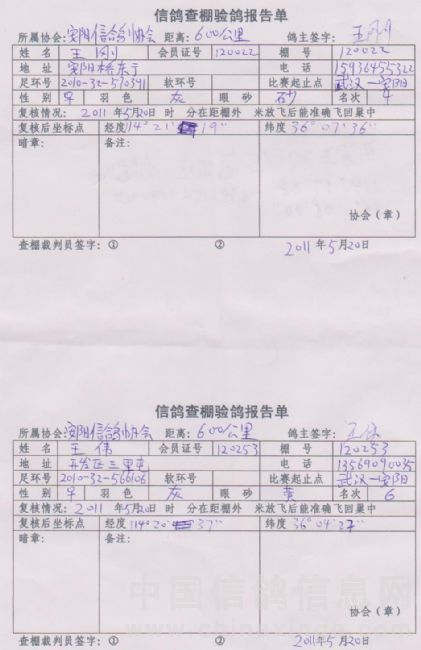 信鸽查棚验鸽报告单
所属协会:安阳信鸽协会 距离:600公里 鸽主签字:王刚
姓名 王刚 会员证号 120022 棚号 120022
地址 安阳桥东宁 电话 15936455322
足环号 2010-32-570391 软环号 比赛起止点 武汉—安阳
性别 羽色 灰 眼砂 砂 名次 4
复核情况: 2011年5月20日 时 分在距棚外 米放飞后能准确飞回巢中
复核后坐标点 经度114°21′19″ 纬度36°07′36″
暗章: 备注:
协会(章)
查棚裁判员签字:① ② 2011年5月20日
信鸽查棚验鸽报告单
所属协会:安阳信鸽协会 距离:600公里 鸽主签字:王伟
姓名 王伟 会员证号 120253 棚号 120253
地址 开发区三里屯 电话 13569090035
足环号 2010-32-566106 软环号 比赛起止点 武汉—安阳
性别 羽色 灰 眼砂 黄 名次 6
复核情况: 2011年5月20日 时 分在距棚外 米放飞后能准确飞回巢中
复核后坐标点 经度114°20′37″ 纬度36°04′27″
暗章: 备注:
协会(章)
中国信鸽信息网
查棚裁判员签字:① ② 2011年5月20日